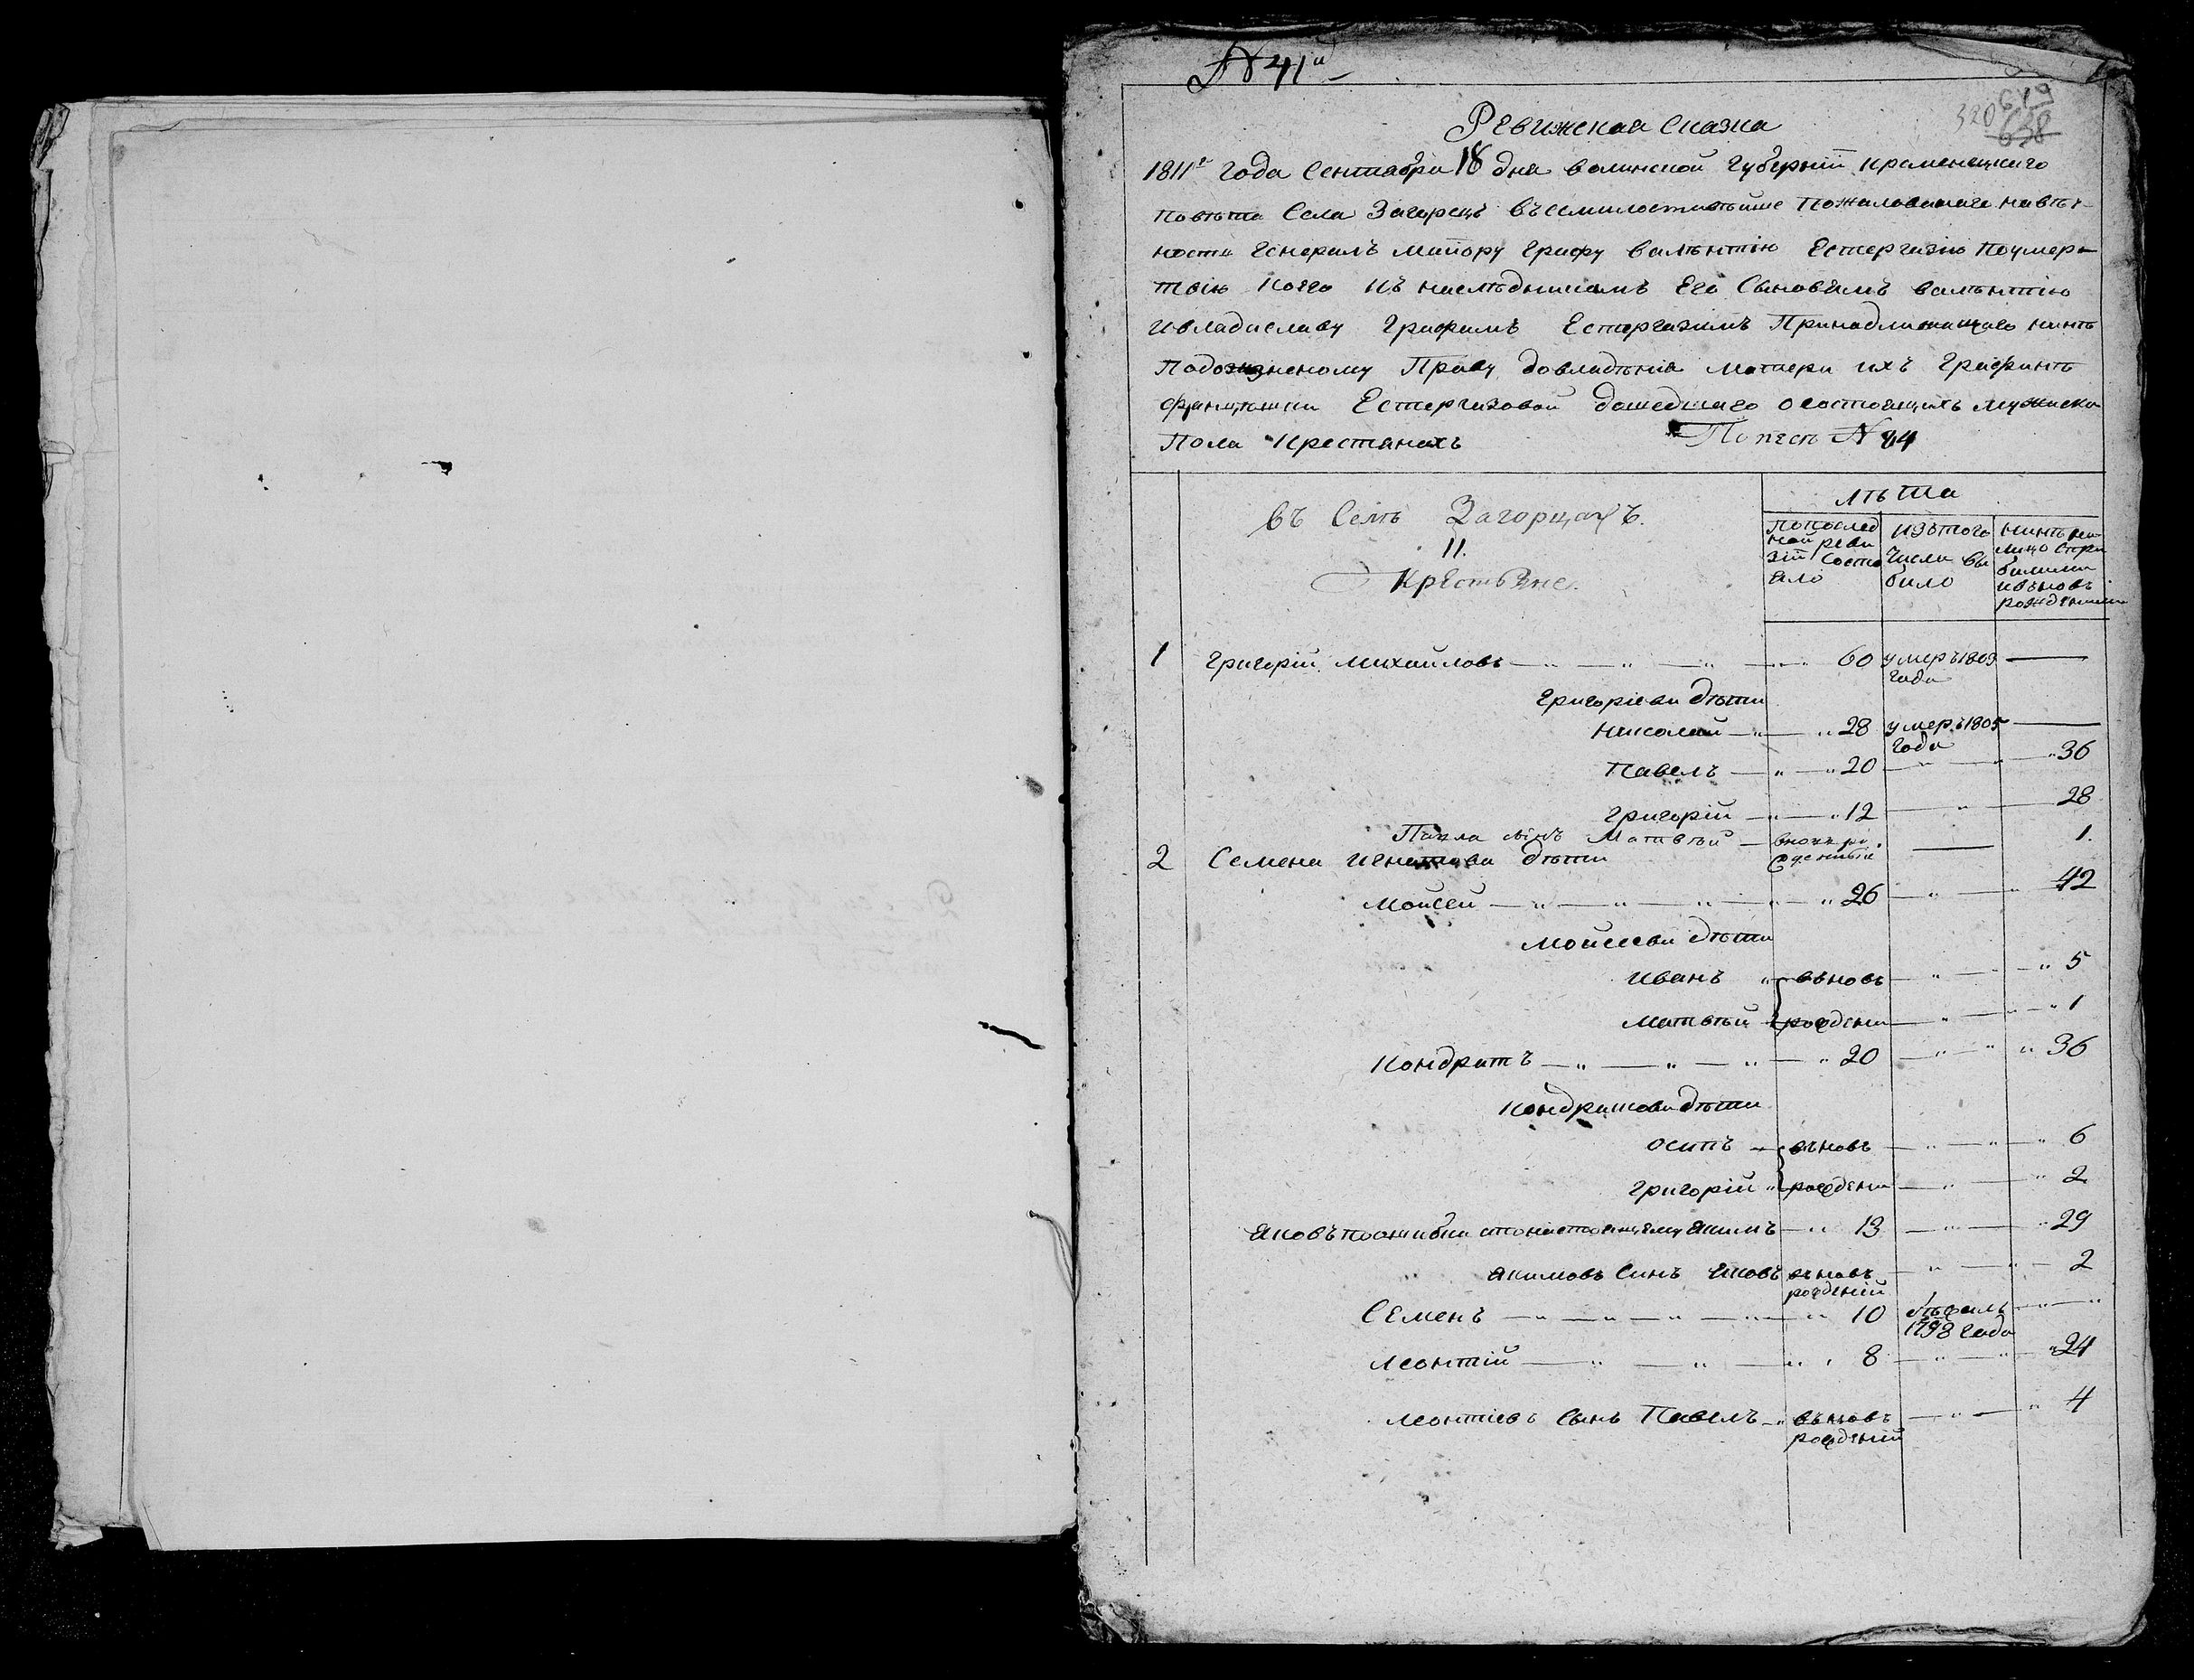 N 41й
619
320 638
Ревижская Сказка
1811г года Сентабра 18 дня волинской Губернїй Кременецкого
повѣта Села Загорецъ въсемилостивѣйше Пожалованаго навѣч-
ность Генералъ Маиору Графу валѣнтію Естергазію Поумер-
твію коего Къ наслѣдникамъ Его Сыновямъ валѣнтію
ивладиславу Графамъ Естергазимъ Принадлижащаго нинѣ
Подожизненому Праву довладѣнія матери ихъ Графинѣ
францѣшки Естергазовой дошедшаго осостоящихъ мужеска
Пола Крестянахъ N 84
въ Селѣ Загорцахъ.
11.
Крестьяне.
лѣта
Попослед
ней реви
зїй состо
яло
изѣтого
числа вы
било
нинѣ на
лицо спри
билими
ивъновь
рожденими
1 Григорій Михайловъ 60 умеръ 1809
года
Григоріеви дѣти
Николай 28 умеръ 1805
года
Павелъ 20 36
Григорій 12 28
Павла синъ Матвѣй 1.
2 Семена Игнатова дѣти
Мойсей 26 42
Мойсееви дѣти
Иванъ въновь 5
Матвѣй рождени 1
Кондратъ 20 36
Кондратови дѣти
Осипъ въновь 6
Григорій рождени 2
Яковъ поошибки апонастоящему Якимъ 13 29
Якимовъ Синъ Яковъ въновь 2
рожденій
Семенъ 10 бѣжалъ
1798 года
Леонтій 8 24
Леонтіевъ Сынъ Павелъ въновь 4
рожденій